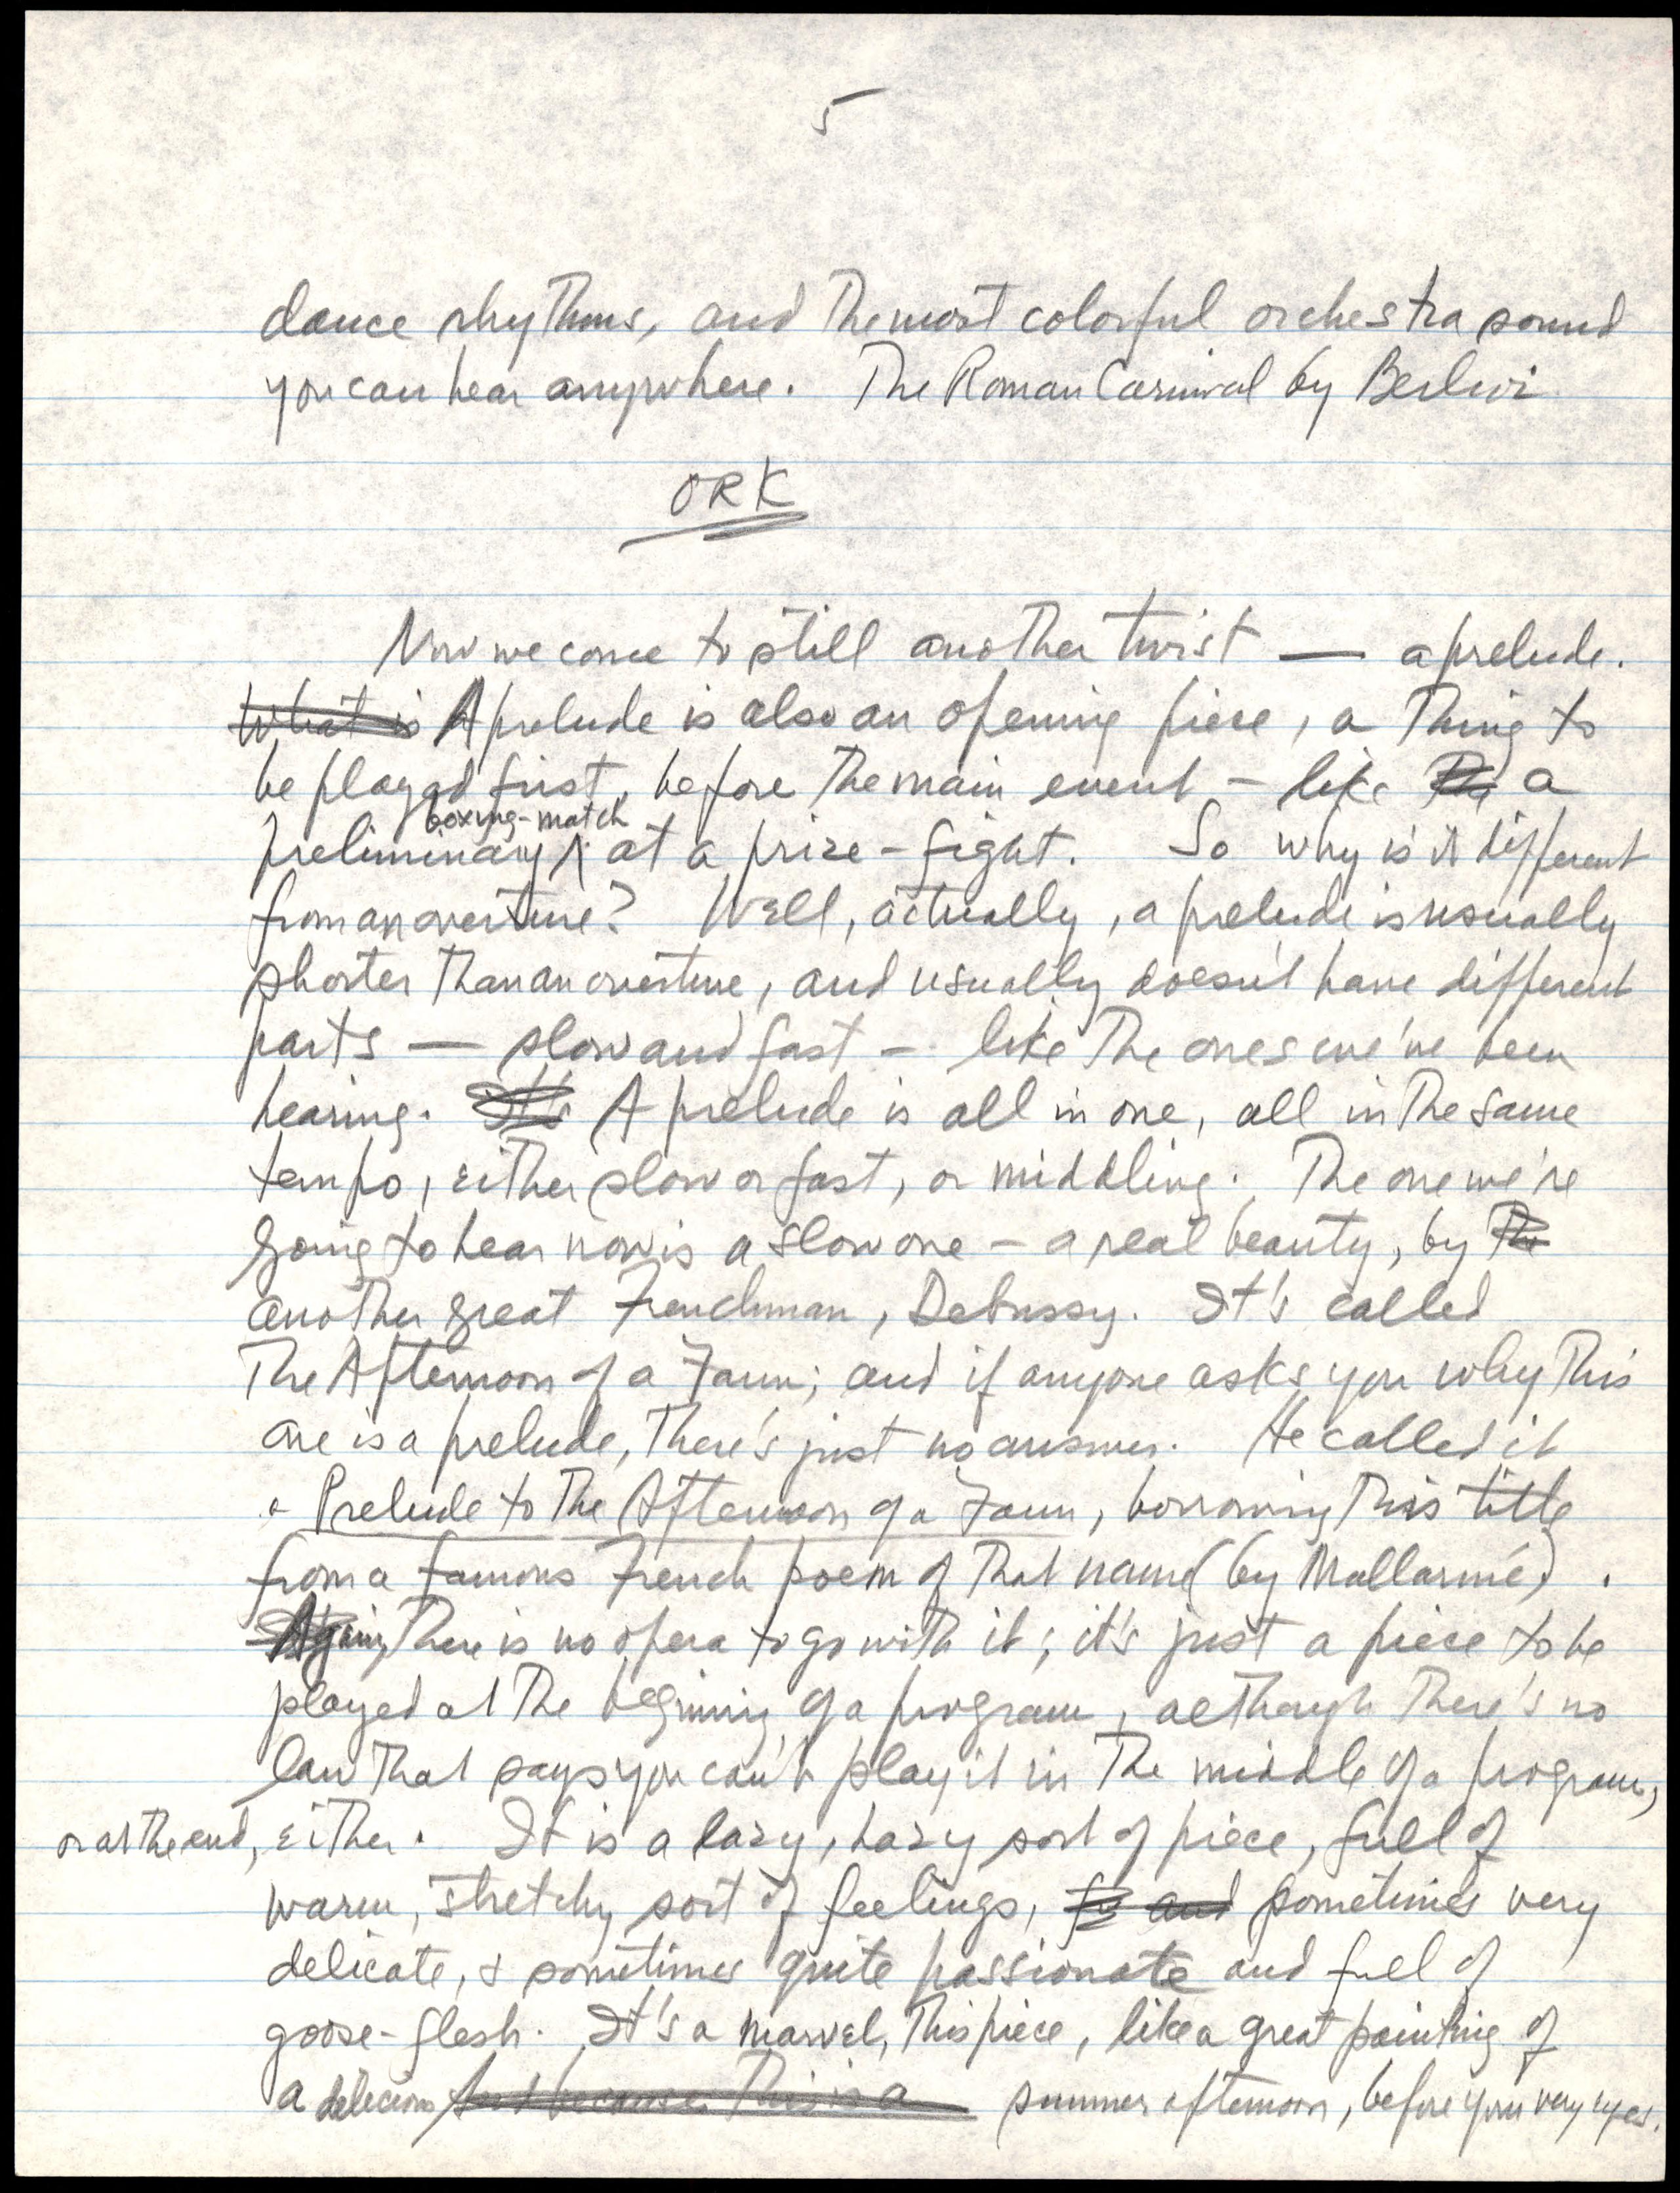 5
dance rhythms, and the most colorful orchestra sound
you can hear anywhere. The Roman Carnival by Berlioz
ORK
Now we come to still another twist — a prelude.
What is A prelude is also an opening piece, a thing to
be played first, before the main event - like the a
boxing-match
preliminary ∧ at a prize-fight. So why is it different
from an overture? Well, actually, a prelude is usually
shorter than an overture, and usually doesn't have different
parts — slow and fast - like the ones we've been
hearing. It's A prelude is all in one, all in the same
tempo, either slow or fast, or middling. The one we're
going to hear now is a slow one - a real beauty, by the
another great Frenchman, Debussy. It's called
The Afternoon of a Faun; and if anyone asks you why this
one is a prelude, there's just no answer. He called it
a Prelude to the Afternoon of a Faun, borrowing this title
from a famous French poem of that name (by Mallarmé).
Again, There is no opera to go with it; it's just a piece to be
played at the beginning of a program, although there's no
law that says you can't play it in the middle of a program,
or at the end, either. It is a lazy, hazy sort of piece, full of
warm, stretchy sort of feelings, and sometimes very
delicate, & sometimes quite passionate and full of
goose-flesh. It's a marvel, this piece, like a great painting of
a delicious And because this is a summer afternoon, before your very eyes.